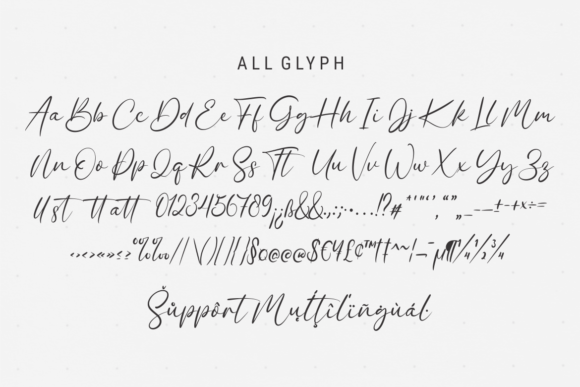 ALL GLYPH
Aa Bb Cc Dd Ee Ff Gg Hh Ii Jj Kk Ll Mm
Nn Oo Pp Qq Rr Ss Tt Uu Vv Ww Xx Yy Zz
0123456789¿¡ß&&.,:;·…!?#
%‰//|\()[]§o@@@$€¥£¢™††^~¦¯µ¶¼½¾
Šůppôrt Muţţĭl'ïñğùáĺ